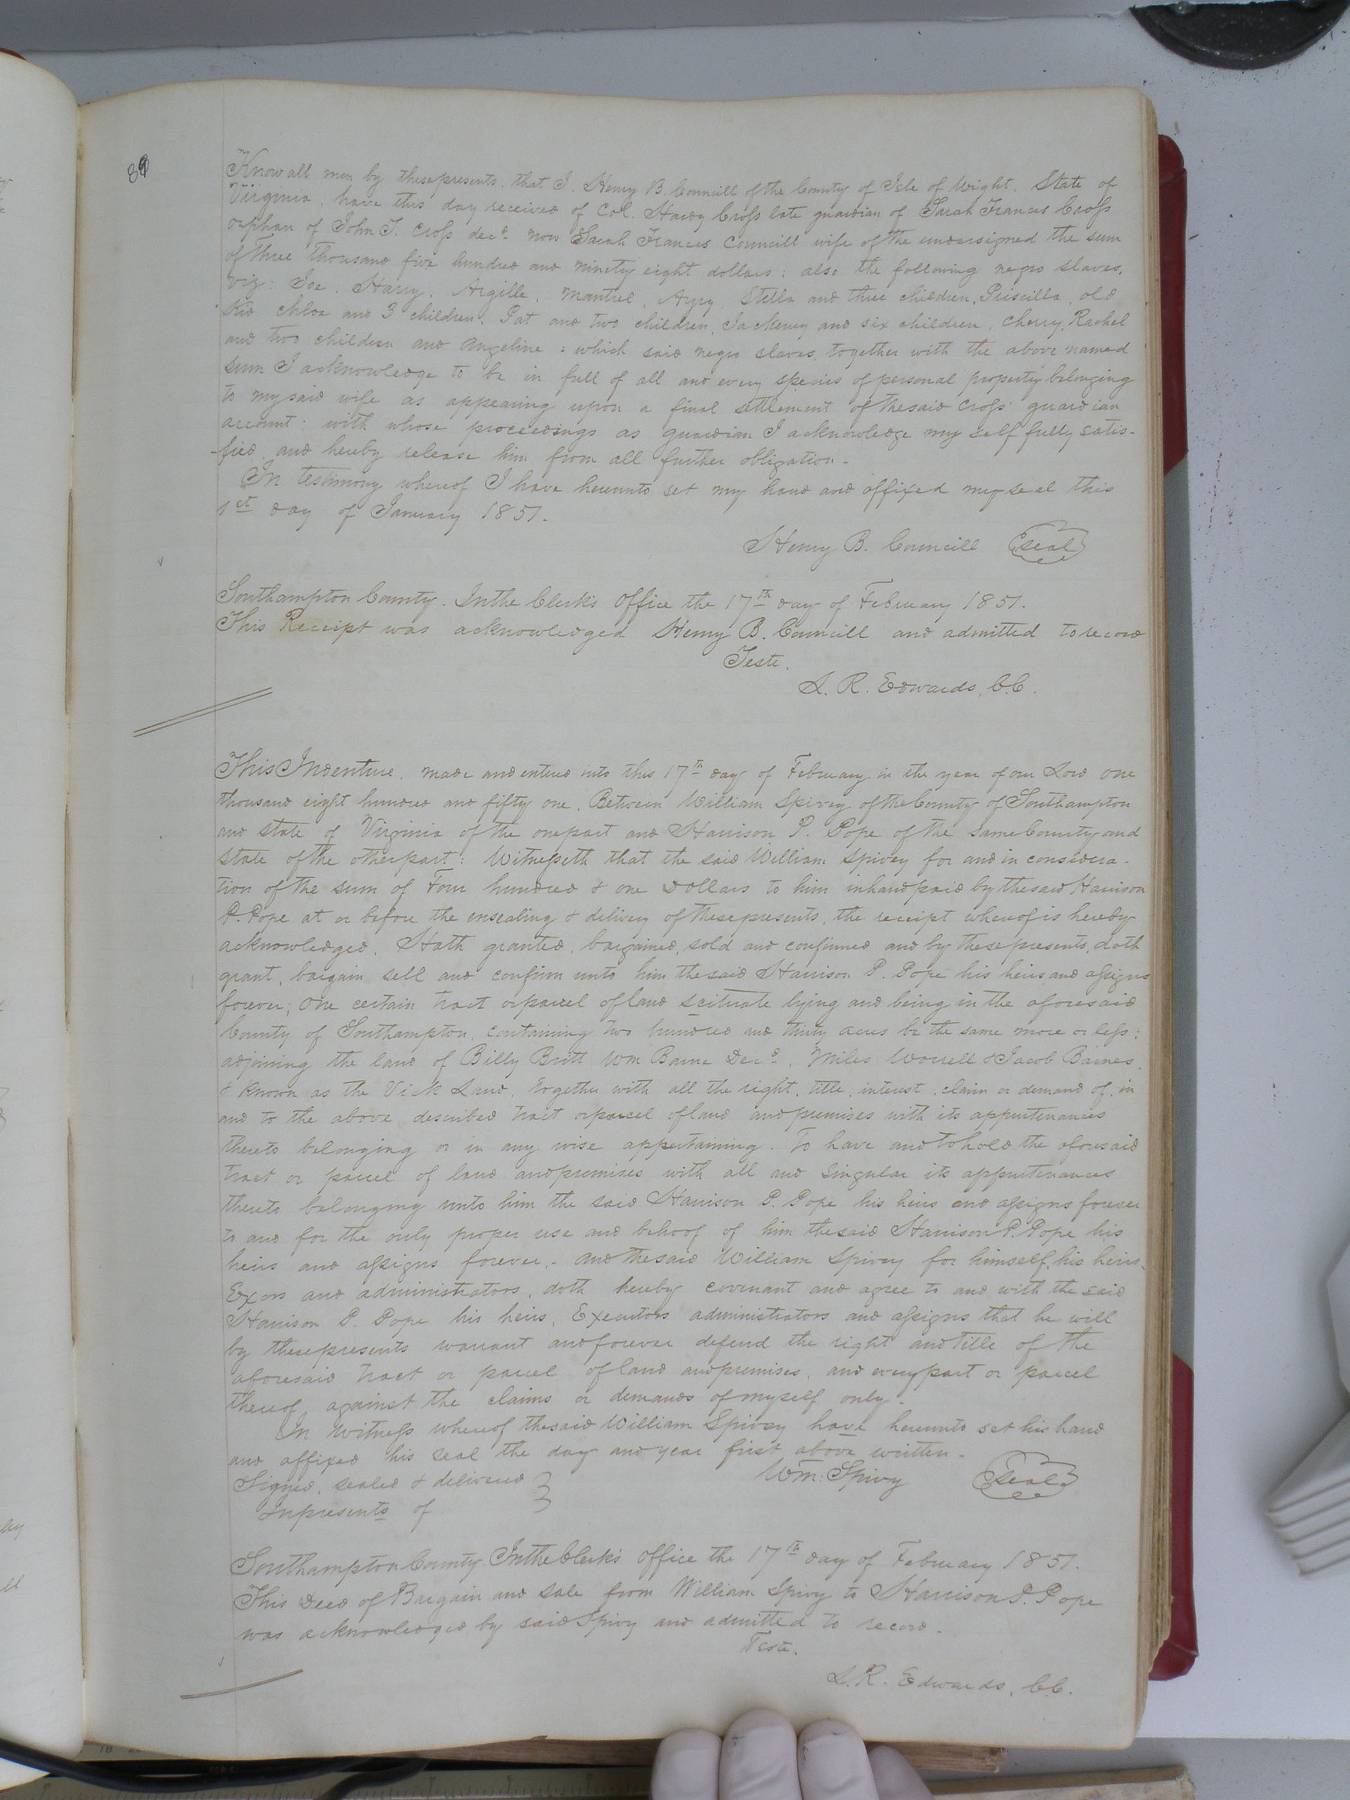 89
Know all men by these presents that I. Henry B. Councill of the County of Isle of Wight. State of
Virginia, have this day received of Col. Hardy Cross late guardian of Sarah Frances Cross
orphan of John T. Cross decd. now Sarah Frances Councill wife of the undersigned the sum
of three thousand five hundred and ninety eight dollars; also the following negro slaves,
viz: Joe. Harry, Argille, Mantrel, Azzy, Stella and three children, Priscilla, old
Kid Chloe and 3 children. Pat and two children, and six children, Cherry, Rachel
and two children and Angeline; which said negro slaves, together with the above named
sum I acknowledge to be in full of all and every species of personal property belonging
to my said wife as appearing upon a final settlement of the said Cross' guardian
account; with whose proceedings as guardian I acknowledge my self fully satis-
-fied, and hereby release him from all further obligation.
In testimony whereof I have hereunto set my hand and affixed my seal this
1st day of January 1851.
Henry B. Councill (seal)
Southampton County. In the Clerk's Office the 17th day of February 1851.
This Receipt was acknowledged Henry B. Councill and admitted to record
Teste.
L. R. Edwards, C.C.
This Indenture, made and entered into this 17th day of February in the year of our Lord one
thousand eight hundred and fifty one. Between William Spivey of the County of Southampton
and state of Virginia of the one part and Harrison P. Pope of the same County and
State of the other part: Witnesseth that the said William Spivey for and in considera-
tion of the sum of Four hundred & one Dollars to him in hand paid by the said Harrison
P. Pope at or before the ensealing & delivery of these presents, the receipt whereof is hereby
acknowledged, Hath granted, bargained, sold and confirmed and by these presents, doth
grant, bargain sell and confirm unto him the said Harrison P. Pope his heirs and assigns
forever; One certain tract or parcel of land scituate lying and being in the aforesaid
County of Southampton, containing two hundred and thirty acres be the same more or less;
adjoining the land of Billy Britt Wm Barne Decd. Miles Worrell & Jacob Barnes,
& known as the Vick Land, together with all the right, title, interest, claim or demand of, in
and to the above described tract or parcel of land and premises with its appurtenances
thereto belonging or in any wise appertaining. To have and to hold the aforesaid
tract or parcel of land and premises with all and singular its appurtenances
thereto belonging unto him the said Harrison P. Pope his heirs and assigns forever
to and for the only proper use and behoof of him the said Harrison P. Pope his
heirs and assigns forever. And the said William Spivey for himself, his heirs,
Exors and administrators, doth hereby covenant and agree to and with the said
Harrison P. Pope his heirs, Executors administrators and assigns that he will
by these presents warrant and forever defend the right and title of the
aforesaid tract or parcel of land and premises, and every part or parcel
thereof, against the claims or demands of myself only.
In Witness whereof the said William Spivey have hereunto set his hand
and affixed his seal the day and year first above written.
Signed, sealed & delivered Wm. Spivy (seal)
In presents of
Southampton County. In the Clerk's Office the 17th day of February 1851.
This Deed of Bargain and sale from William Spivy to Harrison P. Pope
was acknowledged by said Spivy and admitted to record.
Teste.
L. R. Edwards, C.C.